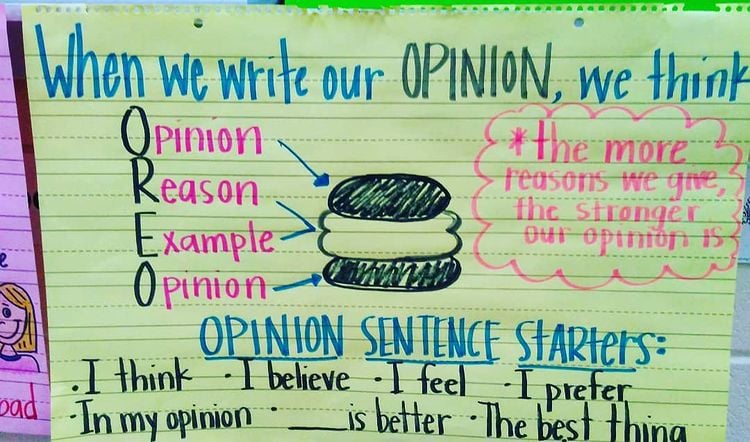 When we write our OPINION, we think
Opinion
Reason
Example
Opinion
*the more
reasons we give,
the stronger
our opinion is
OPINION SENTENCE STARTERS:
·I think ·I believe ·I feel ·I prefer
·In my opinion ·____is better ·The best thing
oad
e